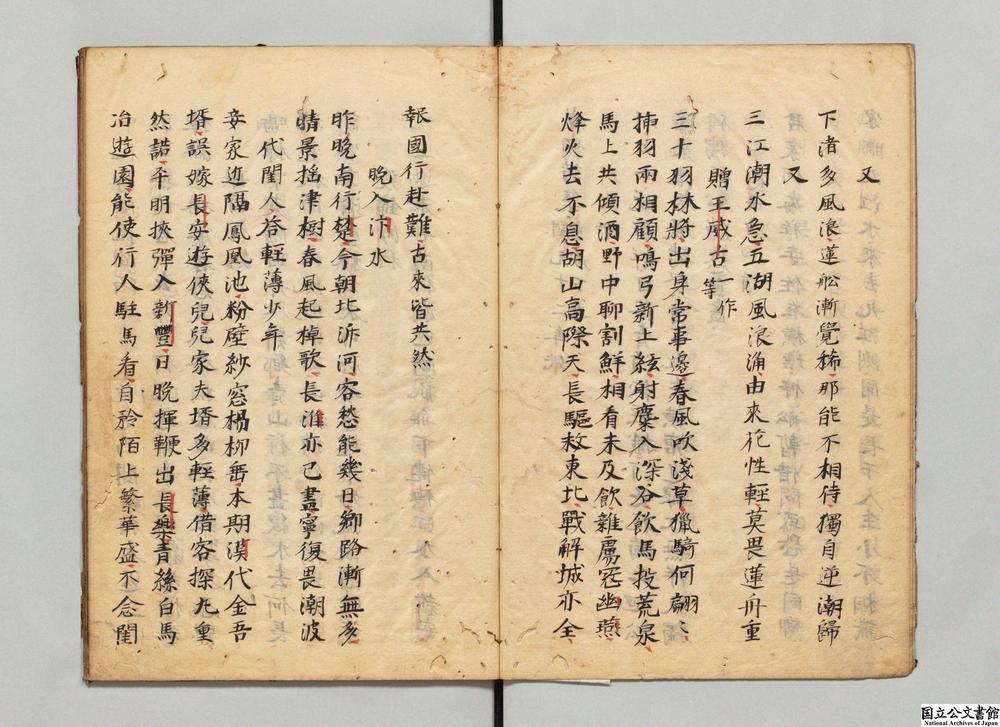 下渚多風浪蓮舩漸覺稀那能不相待獨自逆潮歸
又
三江潮水急五湖風浪涌由來花性輕莫畏蓮舟重
贈王威古一作等
三十羽林將出身常事邊春風吹淺草獵騎何翩〻
揷羽兩相顧鳴弓新上絃射麋入深谷飲馬投荒泉
馬上共傾酒野中聊割鮮相看未及飲雜虜冦幽燕
烽火去不息胡山高際天長驅救東北戰解城亦全
報國行赴難古來皆共然
晩入汴水
昨晩南行楚今朝北泝河客愁能幾日鄉路漸無多
晴景揺津樹春風起棹歌長淮亦已盡寧復畏潮波
代閨人荅輕薄少年
妾家近隔鳳凰池粉壁紗窓楊柳垂本期漢代金吾
壻誤嫁長安遊俠兒兒家夫壻多輕薄借客探丸重
然諾平明挾彈入新豐日晩揮鞭出長樂青絲白馬
冶遊園能使行人駐馬看自矜陌上繁華盛不念閨
国立公文書館
National Archives of Japan